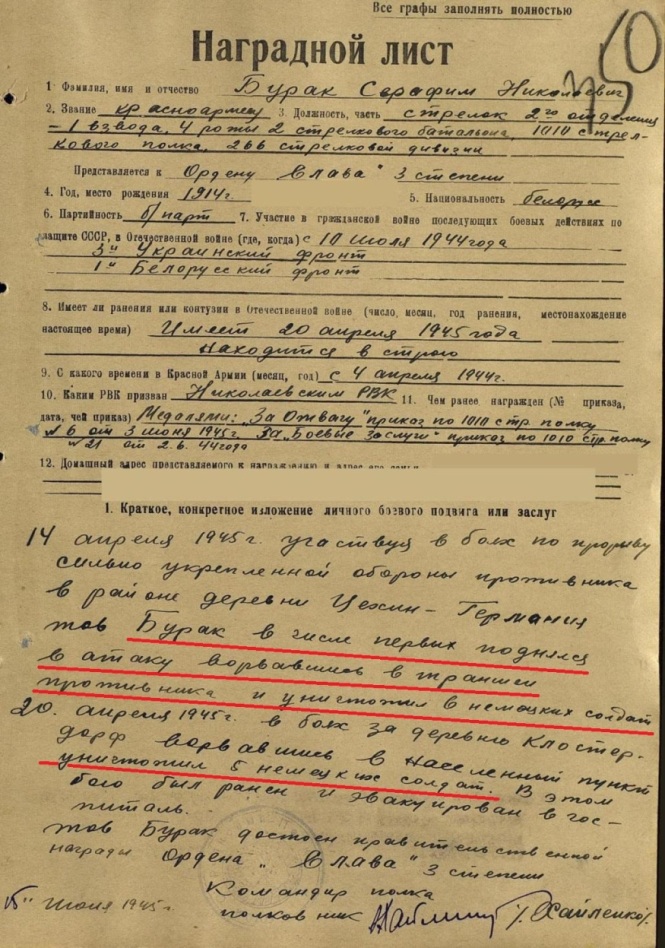 Все графы заполнять полностью
50
Наградной лист
1 Фамилия, имя и отчество Бурак Серафим Николаевич
2. Звание красноармеец 3. Должность, часть стрелок 2го отделения
1 взвода, 4 роты 2 стрелкового батальона, 1010 стрел-
кового полка, 266 стрелковой дивизии
Представляется к Ордену „Слава" 3 степени
4. Год, место рождения 1914г. 5. Национальность белорус
6. Партийность б/парт 7. Участие в гражданской войно последующих боевых действиях по
защите СССР, в Отечественной войне (где, когда) с 10 июля 1944 года
3й Украинский фронт
1й Белорусский фронт
8. Имеет ли ранения или контузии в Отечественной войне (число, месяц, год ранения, местонахождение
настоящее время) Имеет 20 апреля 1945 года
находится в строю
9. С какого времени в Красной Армии (месяц, год) с 4 апреля 1944г.
10. Каким РВК призван Николаевским РВК 11. Чем ранее награжден (№ приказа,
дата, чей приказ) Медалями: „За Отвагу" приказ по 1010 стр. полку
№ 6 от 3 июня 1945г. За „Боевые заслуги" приказ по 1010 стр. полку
№ 21 от 2.6.44 года
12. Домашный адрес представляемого к награждению и адрес его семьи
I. Краткое, конкретное изложение личного боевого подвига или заслуг
14 апреля 1945г. участвуя в боях по прорыву
сильно укрепленной обороны противника
в районе деревни Цехин - Германия
тов Бурак в числе первых поднялся
в атаку ворвавшись в траншеи
противника и уничтожил 8 немецких солдат
20. апреля 1945г. в боях за деревню Клостер-
дорф ворвавшись в населенный пункт
уничтожил 5 немецких солдат. В этом
бою был ранен и эвакуирован в гос-
питаль.
тов Бурак достоен правительственной
награды Ордена „Слава" 3 степени
Командир полка
полковник /Хайленко/.
15" июня 1945г.